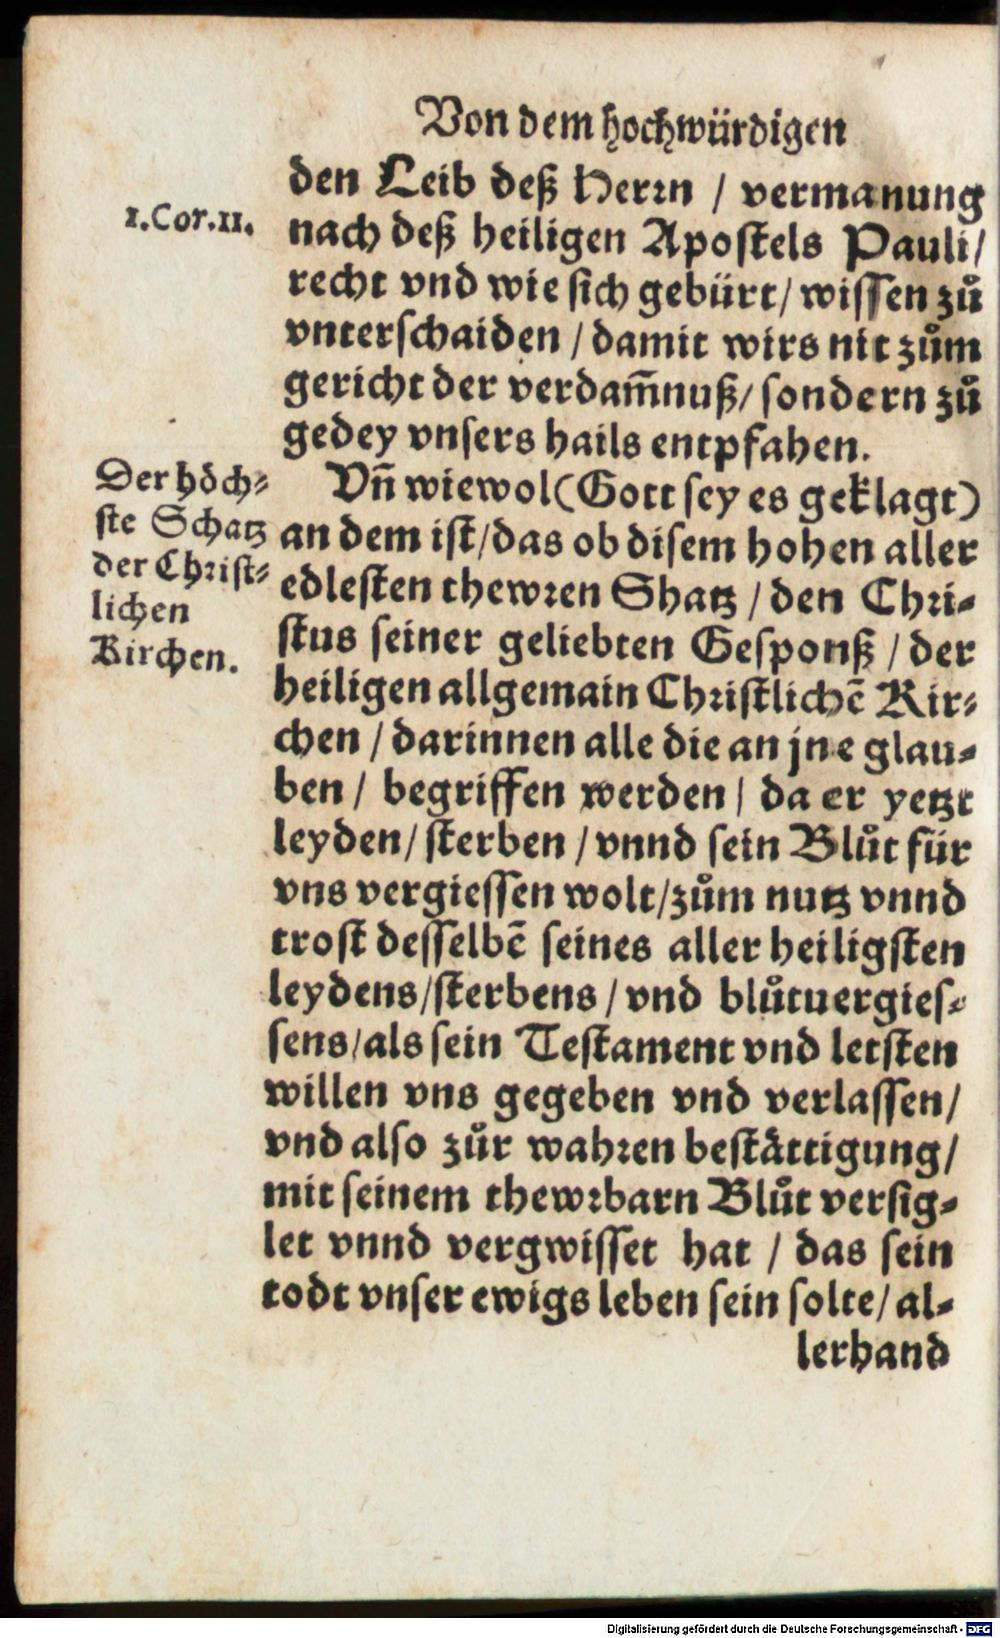 Von dem hochwürdigen
den Leib deß Herrn / vermanung
1.Cor.11.
nach deß heiligen Apostels Pauli/
recht vnd wie sich gebürt/ wissen zů
vnterschaiden / damit wirs nit zům
gericht der verdam̃nuß/ sondern zů
gedey vnsers hails entpfahen.
Der höch⸗
ste Schatz
der Christ⸗
lichen
Kirchen.
Vn̄ wiewol (Gott sey es geklagt)
an dem ist/das ob disem hohen aller
edlesten thewren Shatz / den Chri⸗
stus seiner geliebten Gesponß / der
heiligen allgemain Christlichē Kir⸗
chen / darinnen alle die an jne glau⸗
ben / begriffen werden / da er yetzt
leyden/ sterben / vnnd sein Blůt für
vns vergiessen wolt/zům nutz vnnd
trost desselbē seines aller heiligsten
leydens/sterbens / vnd blůtuergies⸗
sens/als sein Testament vnd letsten
willen vns gegeben vnd verlassen/
vnd also zůr wahren bestättigung/
mit seinem thewrbarn Blůt versig⸗
let vnnd vergwisset hat / das sein
todt vnser ewigs leben sein solte/ al⸗
lerhand
Digitalisierung gefördert durch die Deutsche Forschungsgemeinschaft - DFG